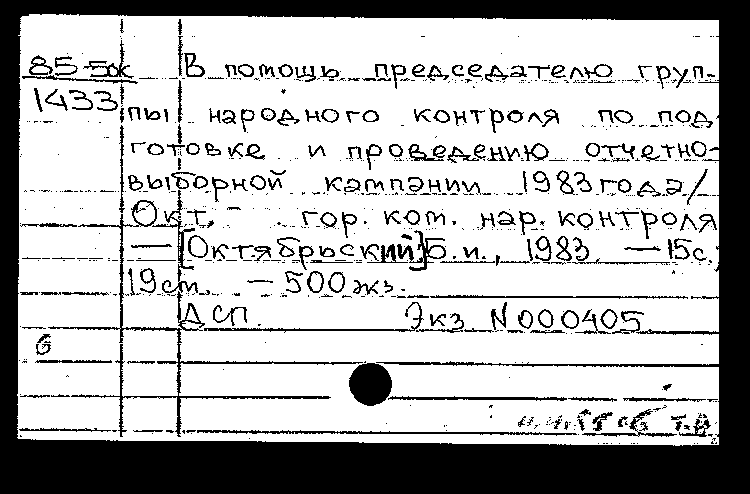 85-5дк В помощь председателю груп-
1433 пы народного контроля по под-
готовке и проведению отчетно-
выборной кампании 1983 года/
Окт. гор. ком. нар. контроля
— [Октябрьский:] Б.и., 1983. — 15с.;
19см. — 500 экз.
ДСП. Экз N000405
б